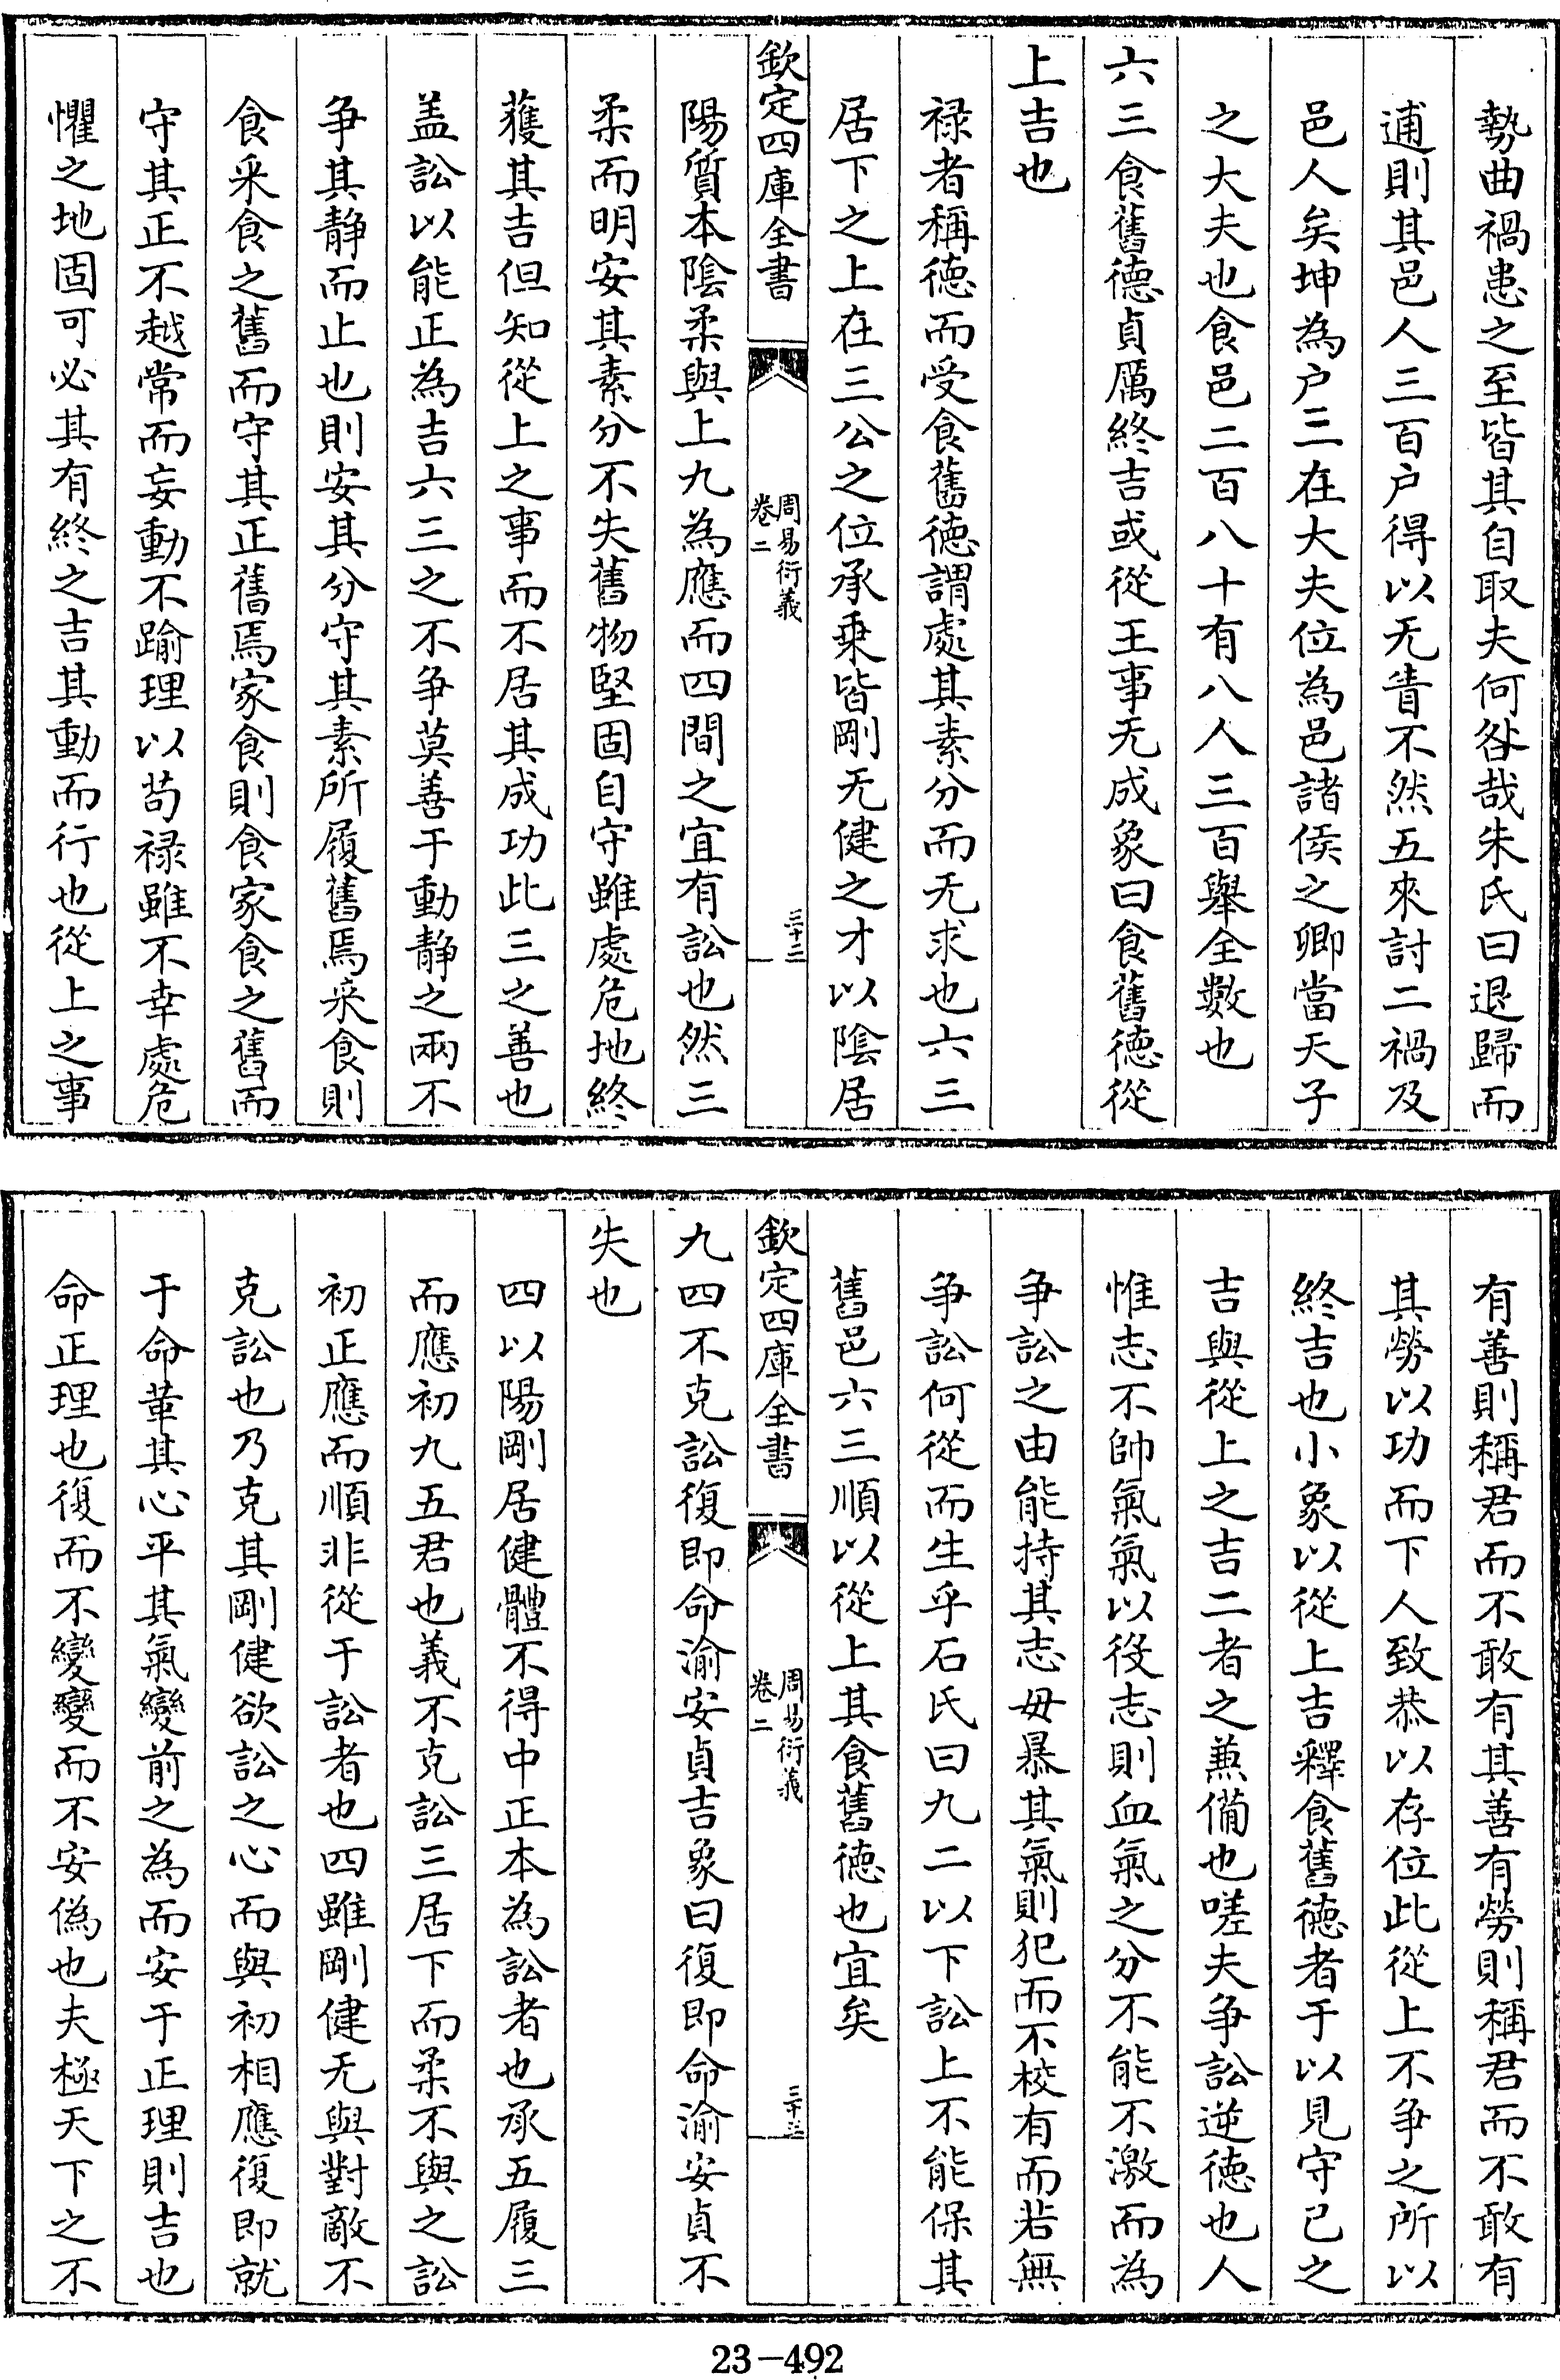 勢曲禍患之至皆其自取夫何咎哉朱氏曰退歸而
逋則其邑人三百户得以无眚不然五來討二禍及
邑人矣坤為户三在大夫位為邑諸侯之卿當天子
之大夫也食邑二百八十有八人三百舉全數也
六三食舊德貞厲終吉或從王事无成象曰食舊徳從
上吉也
禄者稱徳而受食舊徳謂處其素分而无求也六三
居下之上在三公之位承乗皆剛无健之才以陰居
欽定四庫全書
周易衍義
卷二
三十二
陽質本陰柔與上九為應而四間之宜有訟也然三
柔而明安其素分不失舊物堅固自守雖處危地終
獲其吉但知從上之事而不居其成功此三之善也
盖訟以能正為吉六三之不争莫善于動静之兩不
争其静而止也則安其分守其素所履舊焉采食則
食采食之舊而守其正舊焉家食則食家食之舊而
守其正不越常而妄動不踰理以苟禄雖不幸處危
懼之地固可必其有終之吉其動而行也從上之事
有善則稱君而不敢有其善有勞則稱君而不敢有
其勞以功而下人致恭以存位此從上不争之所以
終吉也小象以從上吉釋食舊徳者于以見守已之
吉與從上之吉二者之兼備也嗟夫争訟逆徳也人
惟志不帥氣氣以役志則血氣之分不能不激而為
争訟之由能持其志毋暴其氣則犯而不校有而若無
争訟何從而生乎石氏曰九二以下訟上不能保其
舊邑六三順以從上其食舊徳也宜矣
欽定四庫全書
周易衍義
卷二
三十三
九四不克訟復即命渝安貞吉象曰復即命渝安貞不
失也
四以陽剛居健體不得中正本為訟者也承五履三
而應初九五君也義不克訟三居下而柔不與之訟
初正應而順非從于訟者也四雖剛健无與對敵不
克訟也乃克其剛健欲訟之心而與初相應復即就
于命革其心平其氣變前之為而安于正理則吉也
命正理也復而不變變而不安偽也夫極天下之不
23-492